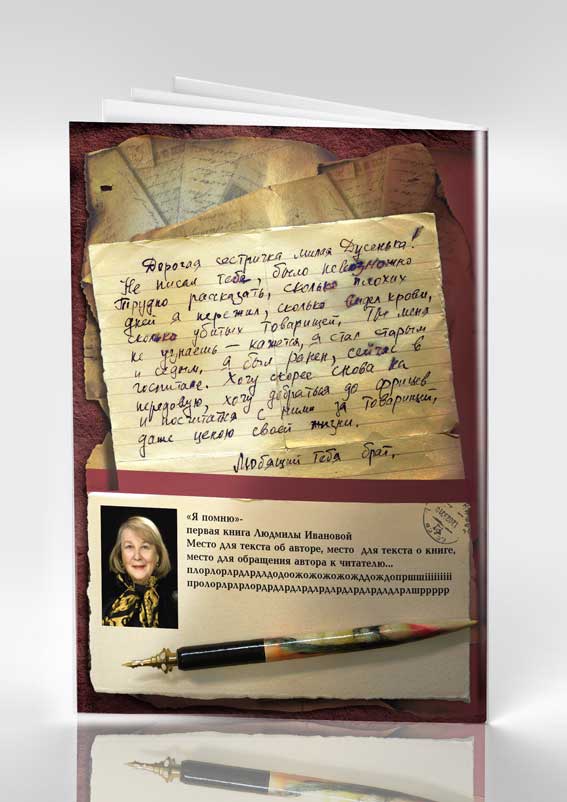 Дорогая сестричка милая Дусенька!
Не писал тебе, было невозможно
Трудно рассказать, сколько плохих
дней я пережил, сколько видел крови,
сколько убитых товарищей. Ты меня
не узнаешь – кажется, я стал старым
и седым. Я был ранен, сейчас в
госпитале. Хочу скорее снова на
передовую, хочу добраться до фрицев
и посчитаться с ними за товарищей,
даже ценою своей жизни.
Любящий тебя брат.
«Я помню»-
первая книга Людмилы Ивановой
Место для текста об авторе, место для текста о книге,
место для обращения автора к читателю...